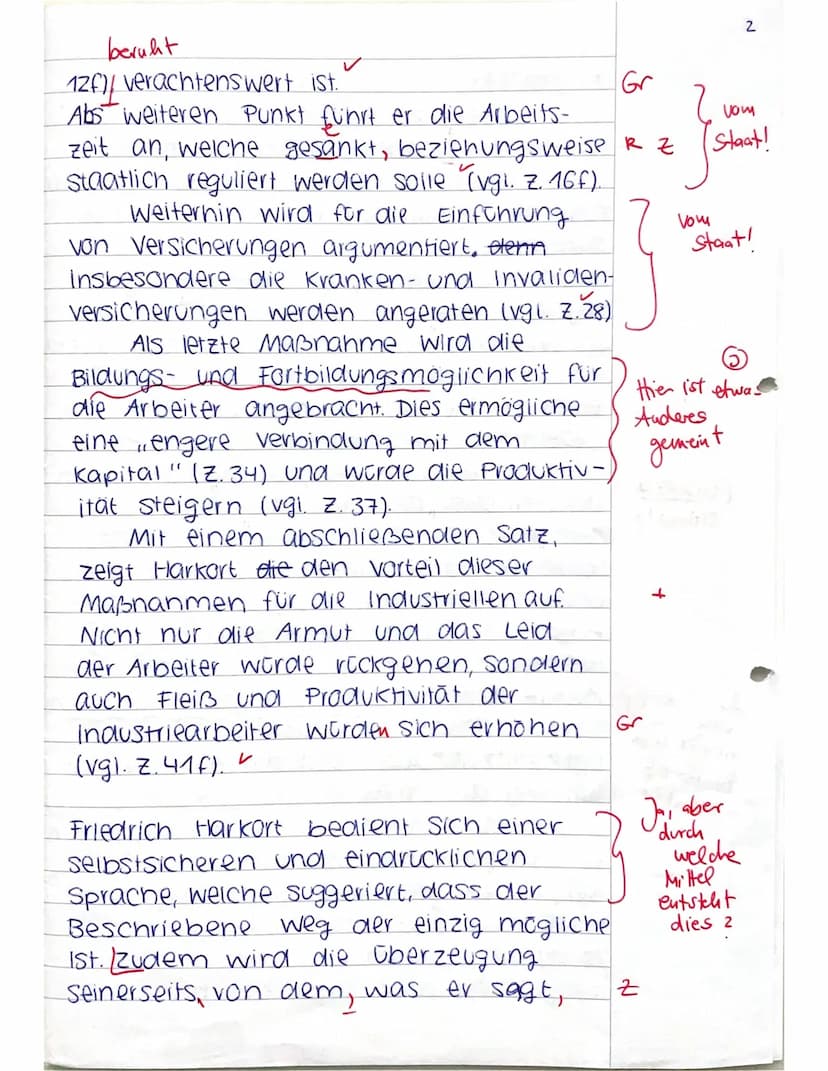 2
beruht
12f), verachtenswert ist.
Gr
Abs weiteren Punkt führt er die Arbeits-
vom
zeit an, welche gesänkt, beziehungsweise
R Z
Staat!
staatlich reguliert werden solle (vgl. Z. 16f).
Weiterhin wird für die Einführung
vom
von Versicherungen argumentiert. denn
Staat!
Insbesondere die Kranken- und Invaliden-
versicherungen werden angeraten (vgl. Z. 28)
Als letzte Maßnahme wird die
Bildungs- und Fortbildungsmöglichkeit für
Hier ist etwas
die Arbeiter angebracht. Dies ermögliche
Anderes
eine „engere Verbindung mit dem
gemeint
Kapital" (Z. 34) und würde die Produktiv-
ität steigern (vgl. Z. 37).
Mit einem abschließenden Satz,
zeigt Harkort die den Vorteil dieser
Maßnahmen für die Industriellen auf.
+
Nicht nur die Armut und das Leid
der Arbeiter würde rückgehen, sondern
auch Fleiß und Produktivität der
Industriearbeiter würden sich erhöhen
Gr
(vgl. Z. 41f).
Friedrich Harkort bedient sich einer
Ja, aber
selbstsicheren und eindrücklichen
durch
welche
Sprache, welche suggeriert, dass der
Mittel
entsteht
Beschriebene Weg der einzig mögliche
dies?
ist. Zudem wird die Überzeugung
seinerseits, von dem, was er sagt,
Z